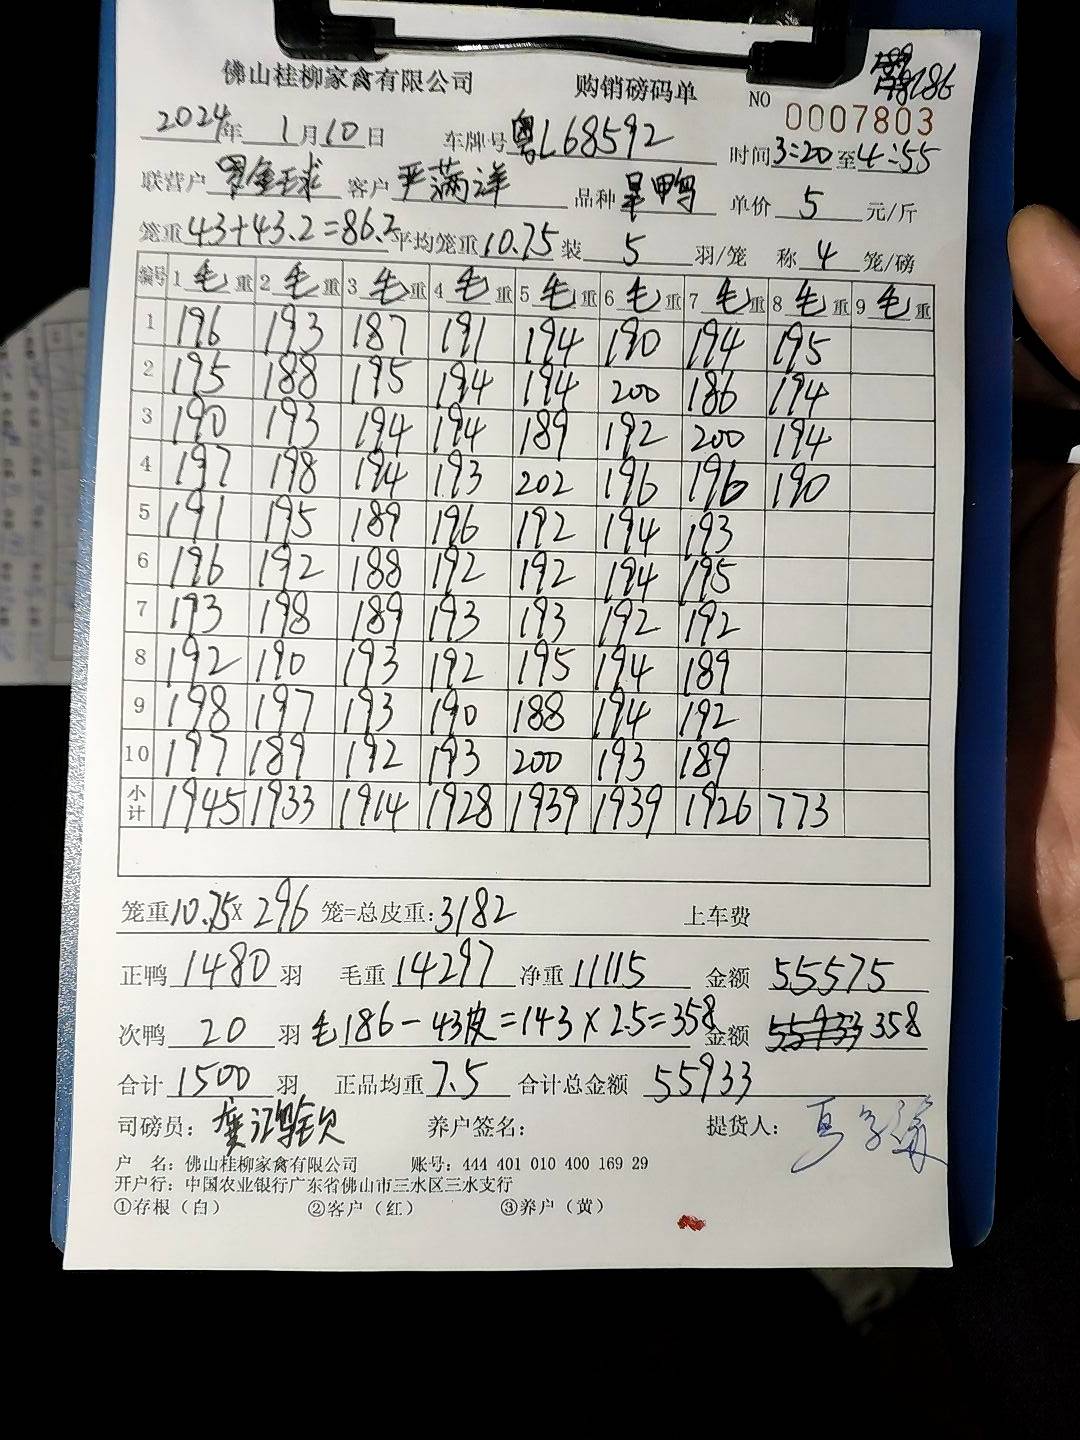 佛山桂柳家禽有限公司 购销磅码单 NO 0007803
186
2024年 1月10日 车牌号 粤L68592 时间3:20至4:55
联营户 罗金球 客户 严满洋 品种 旱鸭 单价 5 元/斤
笼重 43+43.2=86.2 平均笼重 10.75 装 5 羽/笼 称 4 笼/磅
编号 1毛重 2毛重 3毛重 4毛重 5毛重 6毛重 7毛重 8毛重 9毛重
1 196 193 187 191 194 190 194 195
2 195 188 195 194 194 200 186 194
3 190 193 194 194 189 192 200 194
4 197 198 194 193 202 196 196 190
5 191 195 189 196 192 194 193
6 196 192 188 192 192 194 195
7 193 198 189 193 193 192 192
8 192 190 193 192 195 194 189
9 198 197 193 190 188 194 192
10 197 189 192 193 200 193 189
小计 1945 1933 1914 1928 1939 1939 1926 773
笼重10.75× 296 笼=总皮重:3182 上车费
正鸭 1480 羽 毛重 14297 净重 11115 金额 55575
次鸭 20 羽 毛186-43皮=143×2.5=358 金额 55933 358
合计 1500 羽 正品均重 7.5 合计总金额 55933
司磅员: 养户签名: 提货人:
户 名: 佛山桂柳家禽有限公司 账号: 444 401 010 400 169 29
开户行: 中国农业银行广东省佛山市三水区三水支行
①存根（白） ②客户（红） ③养户（黄）